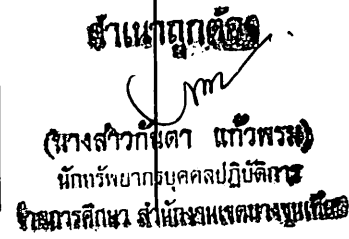 สำเนาถูกต้อง
(นางสาวกันตา แก้วพรม)
นักทรัพยากรบุคคลปฏิบัติการ
ฝ่ายการศึกษา สำนักงานเขตบางขุนเทียน